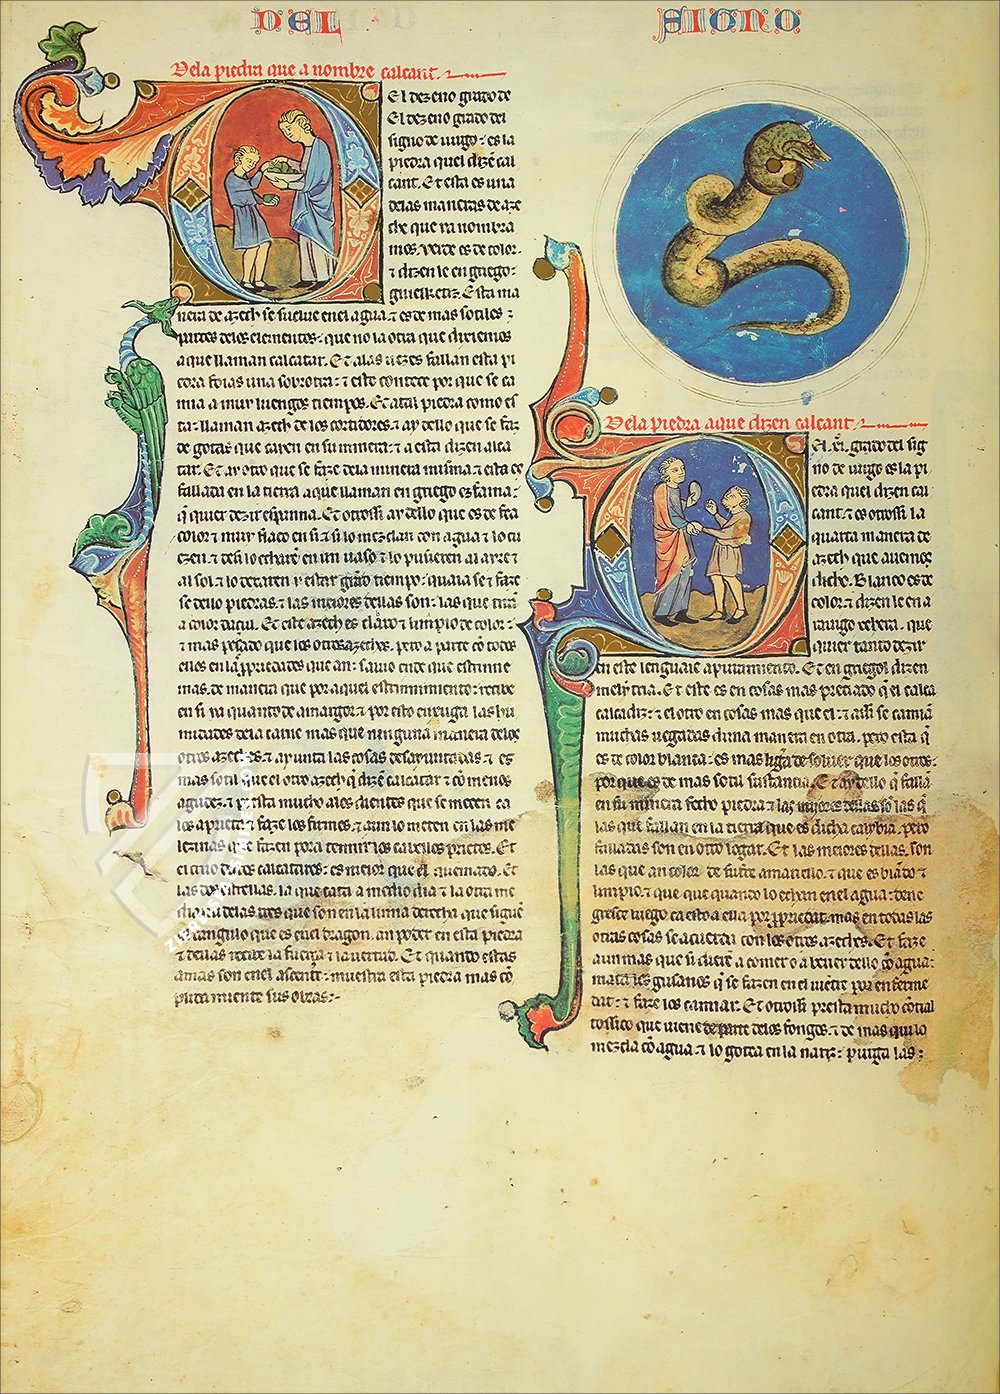 DEL SIGNO
Dela piedra que a nombre calcant.
El dezeno grado de
El dezeno grado del
signo de uirgo: es la
piedra quel dizen cal
cant. Et esta es una
delas maneras de aze
che que ya nombra
mos. verde es de color.
⁊ dizen le en griego.
Esta ma
nera de azech se suelue enel agua. ⁊ es de mas sotiles
partes delos elementos. que no la otra que diremos
a que llaman calcatar. Et alas uezes fallan esta pi
edra foias una sobrotra. ⁊ esto contece por que se ca
mia a muy luengos tiempos. Et atal piedra como es
ta: llaman azech de los cortidores. ⁊ ay dello que se faz
de gotas que caen en su minera. ⁊ a esta dizen alca
tar. Et ay otro que se faze dela minera misma. ⁊ esta es
fallada en la tierra aque llaman en griego
q̃ quier dezir espanna. Et otrossi ay dello que es de fea
color ⁊ muy flaco en si. ⁊ si lo mezclan con agua ⁊ lo cu
ezen. ⁊ desi lo echaren en un uaso ⁊ lo pusieren al ayre ⁊
al sol. ⁊ lo dexaren y estar grãd tiempo. quaia se ⁊ faze
se dello piedras. ⁊ las meiores dellas son: las que tirã
a color dazul. Et este azech es claro ⁊ limpio de color.
⁊ mas pesado que los otros azeches. pero a parte cõ todos
ellos en las propriedades que an. saluo ende que estrinne
mas. de manera que por aquel estrinnimiento: recibe
en si ya quanto de amargor. ⁊ por esto enxuga las hu
midades dela carne mas que ninguna manera delos
otros azeches. ⁊ ayunta las cosas desayuntadas. ⁊ es
mas sotil que el otro azech q̃ dizẽ calcatar ⁊ cõ menos
agudez. ⁊ presta mucho alos dientes que se meten ca
los aprieta ⁊ faze los firmes. ⁊ aun lo meten en las me
lezinas que fazen pora tennir los cabellos prietos. Et
el crudo destos calcatares: es meior que el quemado. Et
las dos estrellas. la que cata a medio dia. ⁊ la otra me
diana delas tres que son en la linna derecha que siguẽ
el tangulo que es enel dragon. an poder en esta piedra
⁊ dellas recibe la fuerça ⁊ la uertud. Et quando estas
amas son enel ascendẽt: muestra esta piedra mas cõ
plida miente sus obras.
Dela piedra aque dizen calcant.
El grado del sig
no de uirgo es la pi
edra quel dizen cal
cant. ⁊ es otrossi la
quarta manera de
azech que auemos
dicho. Blanco es de
color. ⁊ dizen le en a
rauigo que
quier tanto dezir
en este lenguaie apuramiento. Et en griegol dizen
melytria. Et este es en cosas mas preciado q̃ el calca
calcadiz. ⁊ el otro en cosas mas que el. ⁊ assi se camiã
muchas uegadas duna manera en otra. pero esta q̃
es de color blanca: es mas ligera de soluer que los otros.
por que es de mas sotil sustancia. Et ay dello q̃ fallã
en su minera fecho piedra ⁊ las meiores dellas sõ las q̃
las que fallan en la tierra que es dicha pero
falladas son en otro logar. Et las meiores dellas. son
las que an color de fuerte amariello. ⁊ que es blãdo ⁊
limpio. ⁊ que que quando lo echan enel agua: ene
gresce luego ca esto a ella por propriedat. mas en todas las
otras cosas se acuerda con los otros azeches. Et faze
aun mas que si dierẽ a comer o a beuer dello cõ agua:
mata los gusanos q̃ se fazen en el uiẽtre por enferme
dat. ⁊ faze los camiar. Et otrossi presta mucho cõtral
tossico que uiene de parte delos fongos. ⁊ de mas qui lo
mezcla cõ agua ⁊ lo gotea en la nariz. purga las